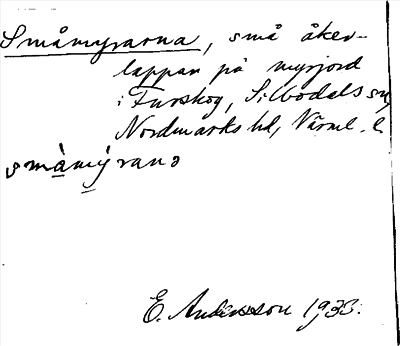 Småmyrarna, små åker-
lappar på myrjord
i Furskog, Silbodals sn,
Nordmarks hd, Värml. l.
småmýrano
E. Andersson 1933.